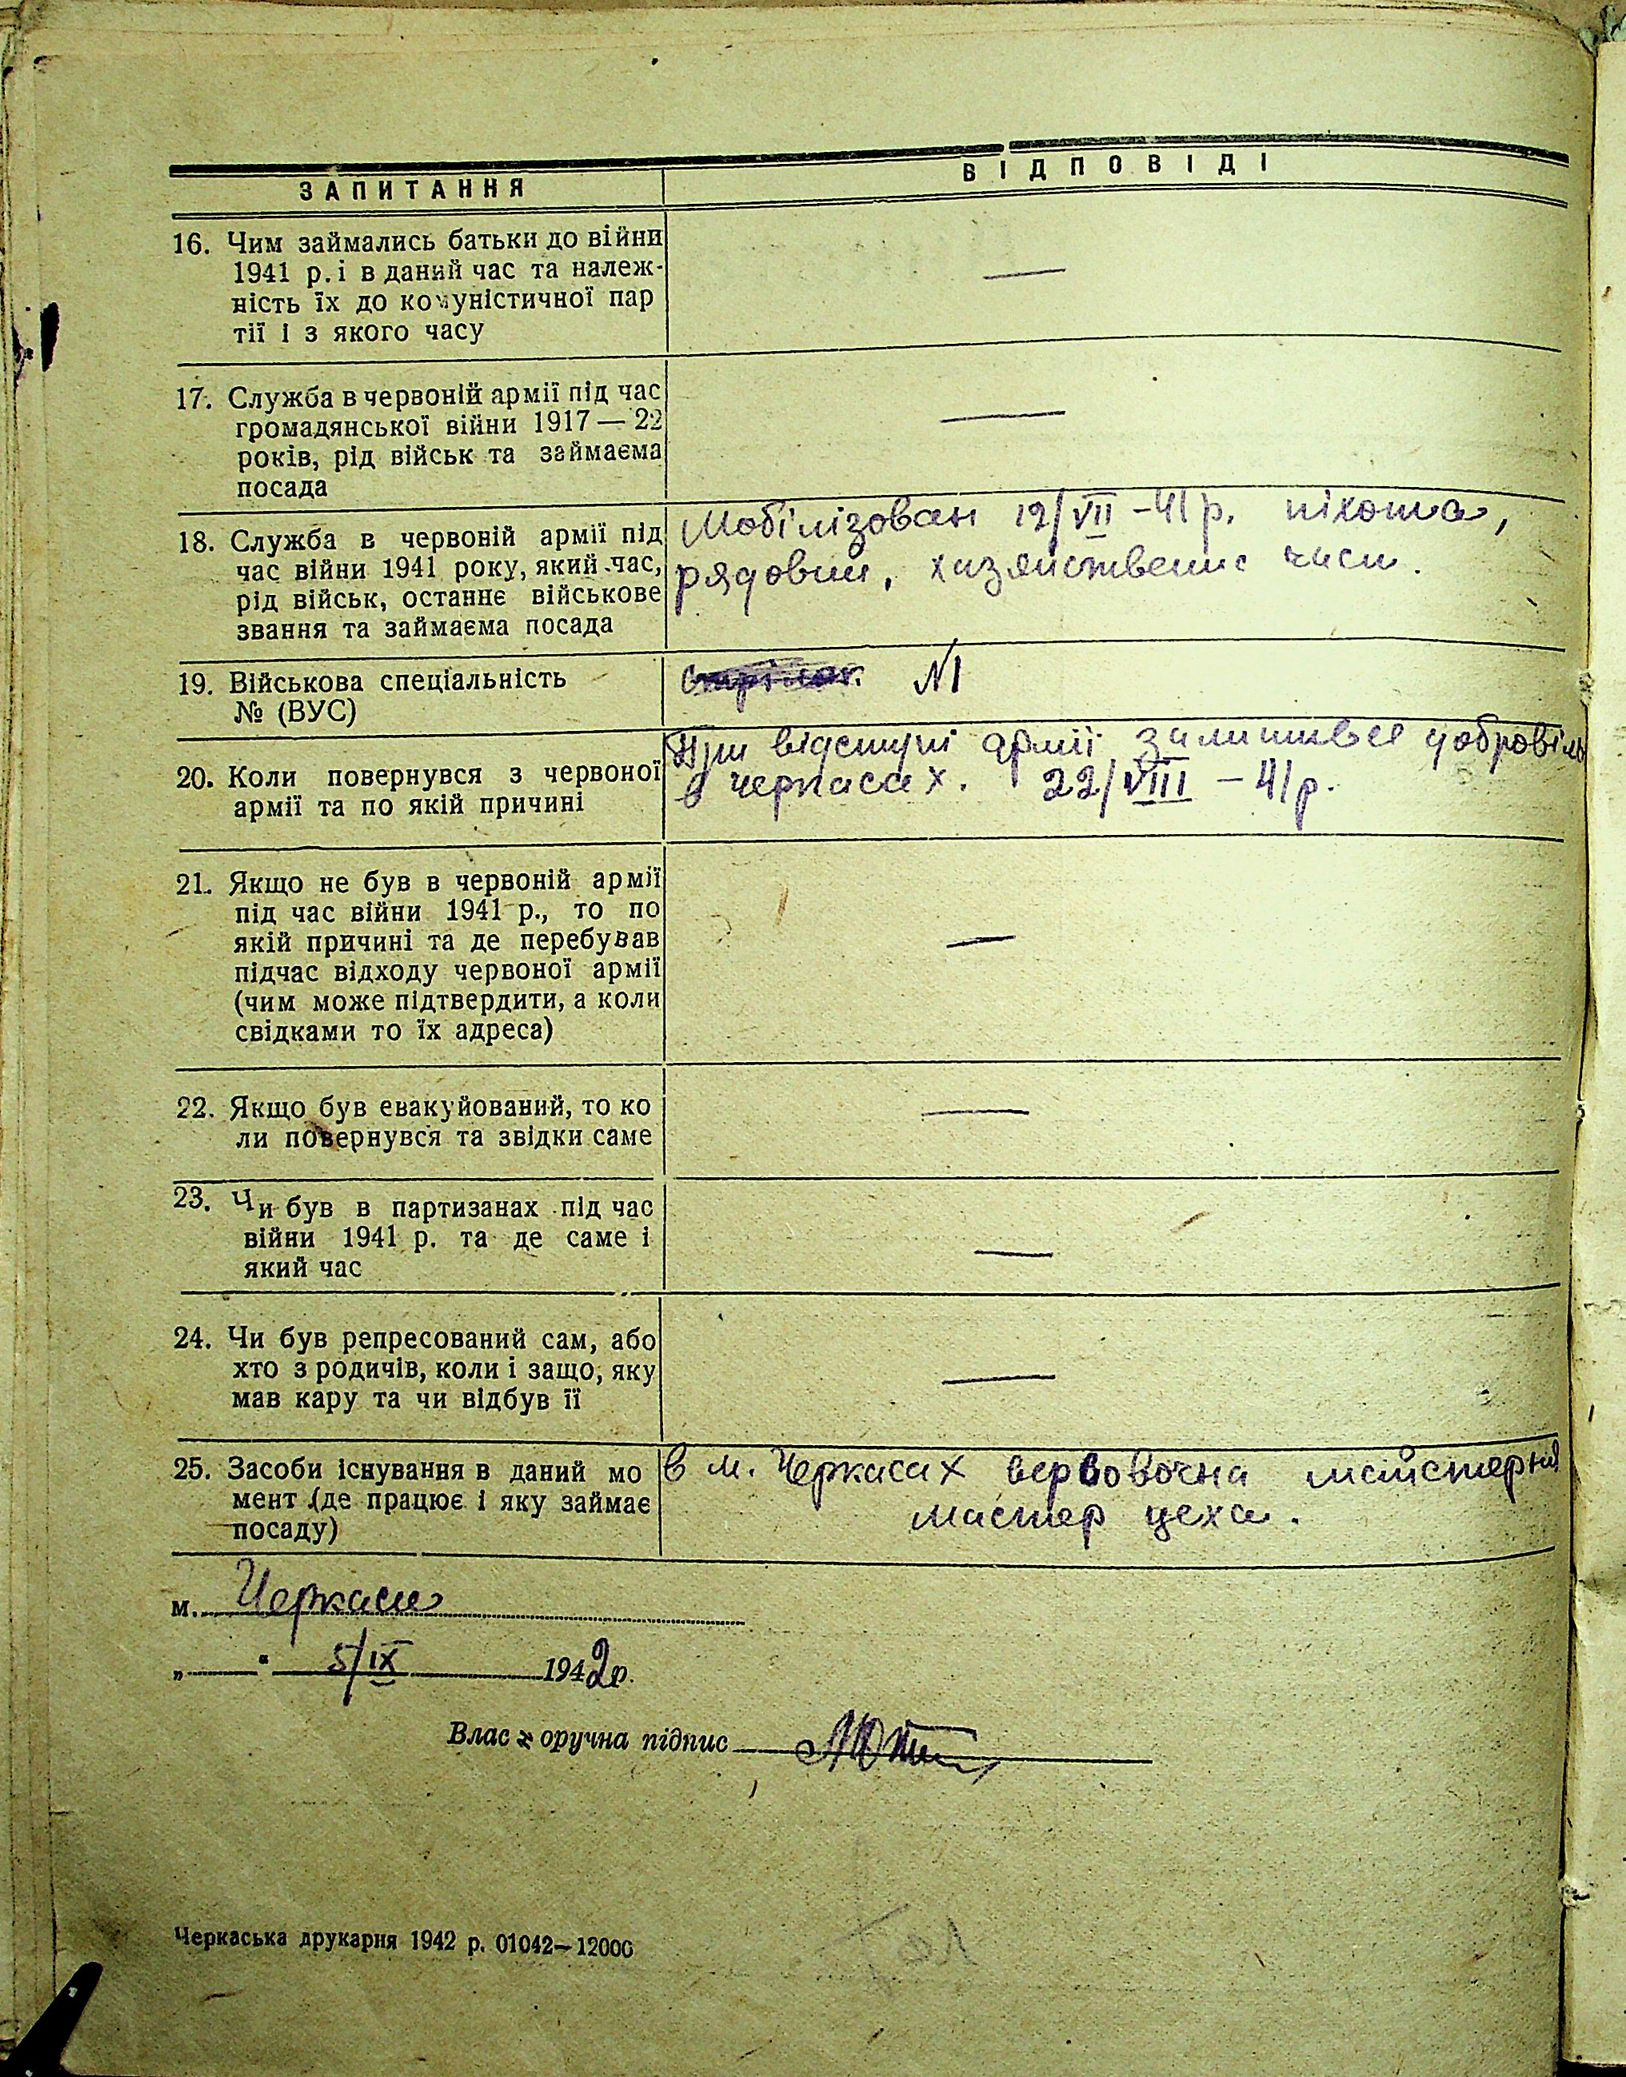 ЗАПИТАННЯ
ВІДПОВІДІ
16. Чим займались батьки до війни
1941 р. і в даний час та належ-
ність їх до комуністичної пар
тії і з якого часу
—
17. Служба в червоній армії під час
громадянської війни 1917 — 22
років, рід військ та займаєма
посада
—
18. Служба в червоній армії під
час війни 1941 року, який час,
рід військ, останнє військове
звання та займаєма посада
Мобілізован 12/VII – 41 р. піхота,
рядовий, хазяйственне части.
19. Військова спеціальність
№ (ВУС)
Стрілок. №1
20. Коли повернувся з червоної
армії та по якій причині
При відступі армії залишився добровіль
в Черкасах. 22/VIII – 41 р.
21. Якщо не був в червоній армії
під час війни 1941 р., то по
якій причині та де перебував
підчас відходу червоної армії
(чим може підтвердити, а коли
свідками то їх адреса)
—
22. Якщо був евакуйований, то ко
ли повернувся та звідки саме
—
23. Чи був в партизанах під час
війни 1941 р. та де саме і
який час
—
24. Чи був репресований сам, або
хто з родичів, коли і защо, яку
мав кару та чи відбув її
—
25. Засоби існування в даний мо
мент (де працює і яку займає
посаду)
в м. Черкасах верьовочна майстерня
мастер цеха.
м. Черкаси
„ “ 5/IX 1942 р.
Власноручна підпис
Черкаська друкарня 1942 р. 01042—12000